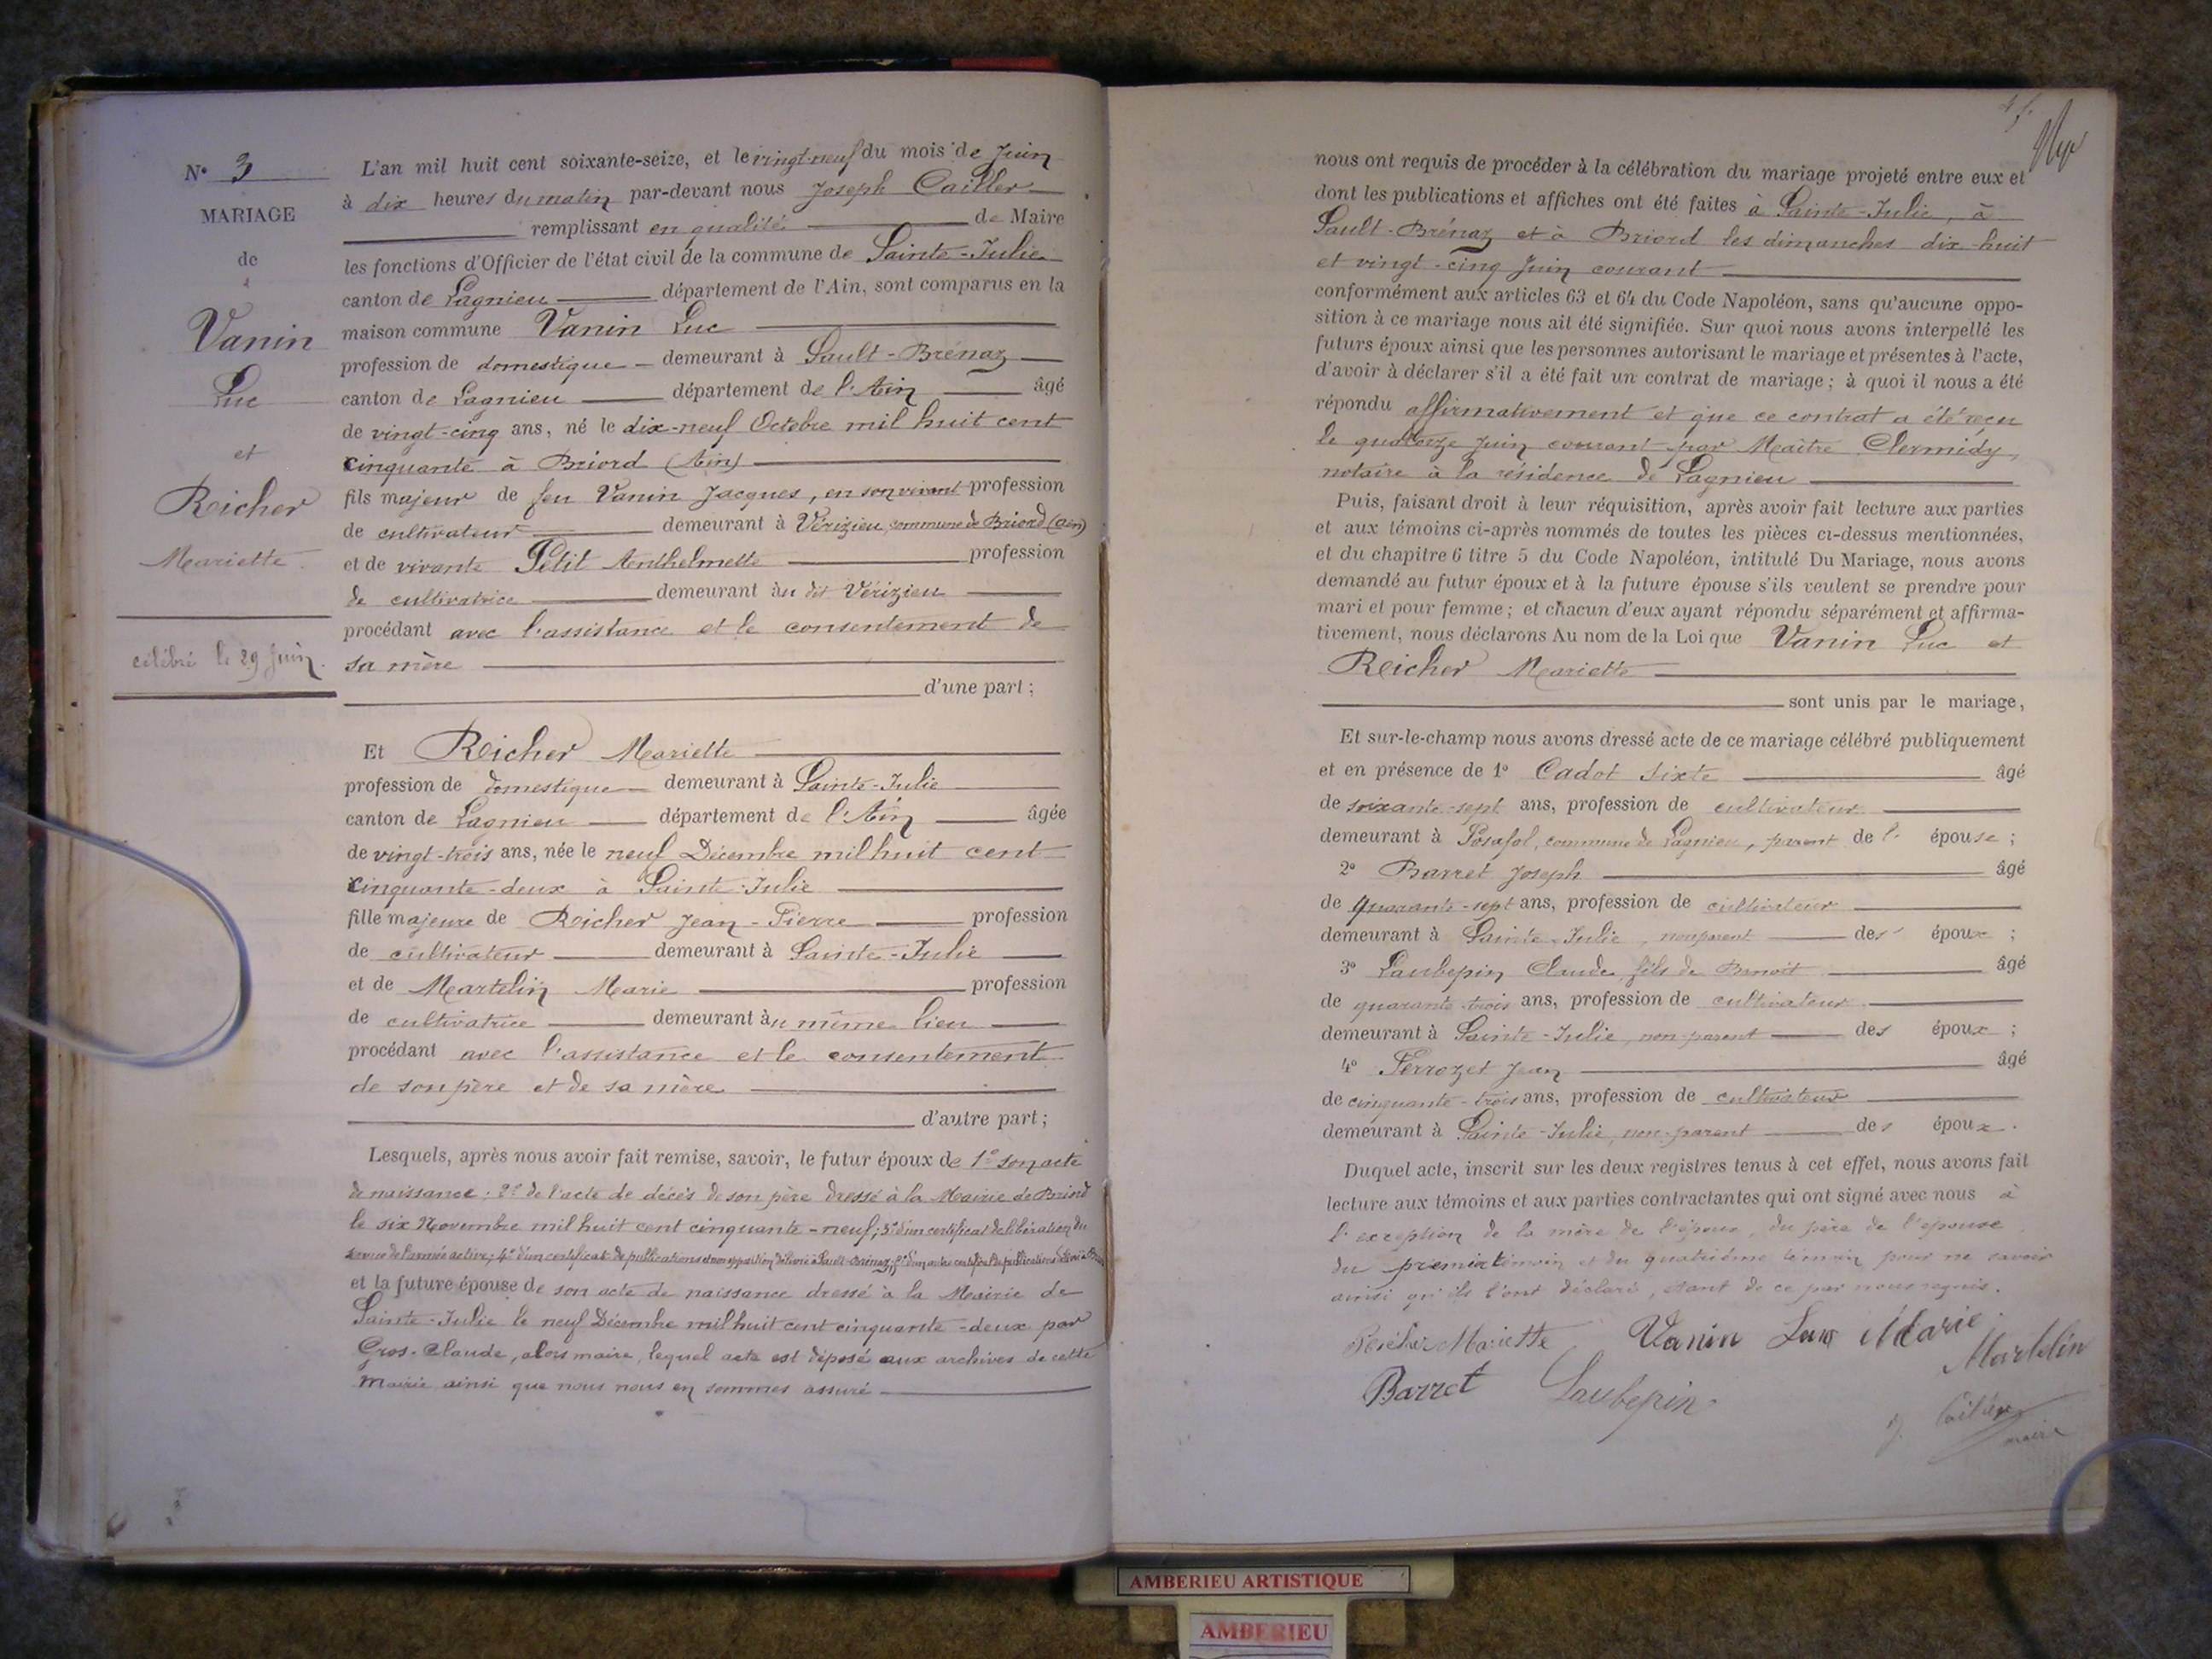 N° 3
MARIAGE
de
Vanin
Luc
et
Reicher
Mariette
célébré le 29 Juin.
L'an mil huit cent soixante-seize, et le vingt-neuf du mois de Juin
à dix heures du matin par-devant nous Joseph Cailler
remplissant en qualité de Maire
les fonctions d'Officier de l'état civil de la commune de Sainte-Julie
canton de Lagnieu département de l'Ain, sont comparus en la
maison commune Vanin Luc
profession de domestique demeurant à Sault-Brénaz
canton de Lagnieu département de l'Ain âgé
de vingt-cinq ans, né le dix-neuf Octobre mil huit cent
cinquante à Briord (Ain)
fils majeur de feu Vanin Jacques, en son vivant profession
de cultivateur demeurant à Vérizieu, commune de Briord (Ain)
et de vivante Petit Anthelmette profession
de cultivatrice demeurant au dit Vérizieu
procédant avec l'assistance et le consentement de
sa mère
d'une part ;
Et Reicher Mariette
profession de domestique demeurant à Sainte-Julie
canton de Lagnieu département de l'Ain âgée
de vingt-trois ans, née le neuf Décembre mil huit cent
cinquante-deux à Sainte-Julie
fille majeure de Reicher Jean-Pierre profession
de cultivateur demeurant à Sainte-Julie
et de Martelin Marie profession
de cultivatrice demeurant au même lieu
procédant avec l'assistance et le consentement
de son père et de sa mère
d'autre part ;
Lesquels, après nous avoir fait remise, savoir, le futur époux de 1° son acte
de naissance ; 2° de l'acte de décès de son père dressé à la Mairie de Briord
le six Novembre mil huit cent cinquante-neuf ; 3° d'un certificat de libération du
service de l'armée active ; 4° d'un certificat de publications et non opposition délivré à Sault-Brénaz ; 5° d'un autre certificat de publications délivré à
et la future épouse de son acte de naissance dressé à la Mairie de
Sainte-Julie le neuf Décembre mil huit cent cinquante-deux par
Gros-Claude, alors maire, lequel acte est déposé aux archives de cette
Mairie ainsi que nous nous en sommes assuré
nous ont requis de procéder à la célébration du mariage projeté entre eux et
dont les publications et affiches ont été faites à Sainte-Julie, à
Sault-Brénaz et à Briord les dimanches dix-huit
et vingt-cinq Juin courant
conformément aux articles 63 et 64 du Code Napoléon, sans qu'aucune oppo-
sition à ce mariage nous ait été signifiée. Sur quoi nous avons interpellé les
futurs époux ainsi que les personnes autorisant le mariage et présentes à l'acte,
d'avoir à déclarer s'il a été fait un contrat de mariage ; à quoi il nous a été
répondu affirmativement et que ce contrat a été reçu
le quatorze Juin courant par Maître Clermidy,
notaire à la résidence de Lagnieu
Puis, faisant droit à leur réquisition, après avoir fait lecture aux parties
et aux témoins ci-après nommés de toutes les pièces ci-dessus mentionnées,
et du chapitre 6 titre 5 du Code Napoléon, intitulé Du Mariage, nous avons
demandé au futur époux et à la future épouse s'ils veulent se prendre pour
mari et pour femme ; et chacun d'eux ayant répondu séparément et affirma-
tivement, nous déclarons Au nom de la Loi que Vanin Luc et
Reicher Mariette
sont unis par le mariage,
Et sur-le-champ nous avons dressé acte de ce mariage célébré publiquement
et en présence de 1° Cadot Sixte âgé
de soixante-sept ans, profession de cultivateur
demeurant à Posafol, commune de Lagnieu, parent de l' épouse ;
2° Barret Joseph âgé
de quarante-sept ans, profession de cultivateur
demeurant à Sainte-Julie, non parent des époux ;
3° Laubepin Claude, fils de Benoit âgé
de quarante-trois ans, profession de cultivateur
demeurant à Sainte-Julie, non parent des époux ;
4° Ferrozet Jean âgé
de cinquante-trois ans, profession de cultivateur
demeurant à Sainte-Julie, non-parent des époux.
Duquel acte, inscrit sur les deux registres tenus à cet effet, nous avons fait
lecture aux témoins et aux parties contractantes qui ont signé avec nous à
l'exception de la mère de l'époux, du père de l'épouse
du premier témoin et du quatrième témoin pour ne savoir
ainsi qu'ils l'ont déclaré, étant de ce par nous requis.
Reicher Mariette Vanin Luc Marie
Martelin
Barret Laubepin
J. Cailler
maire
AMBERIEU ARTISTIQUE
AMBERIEU